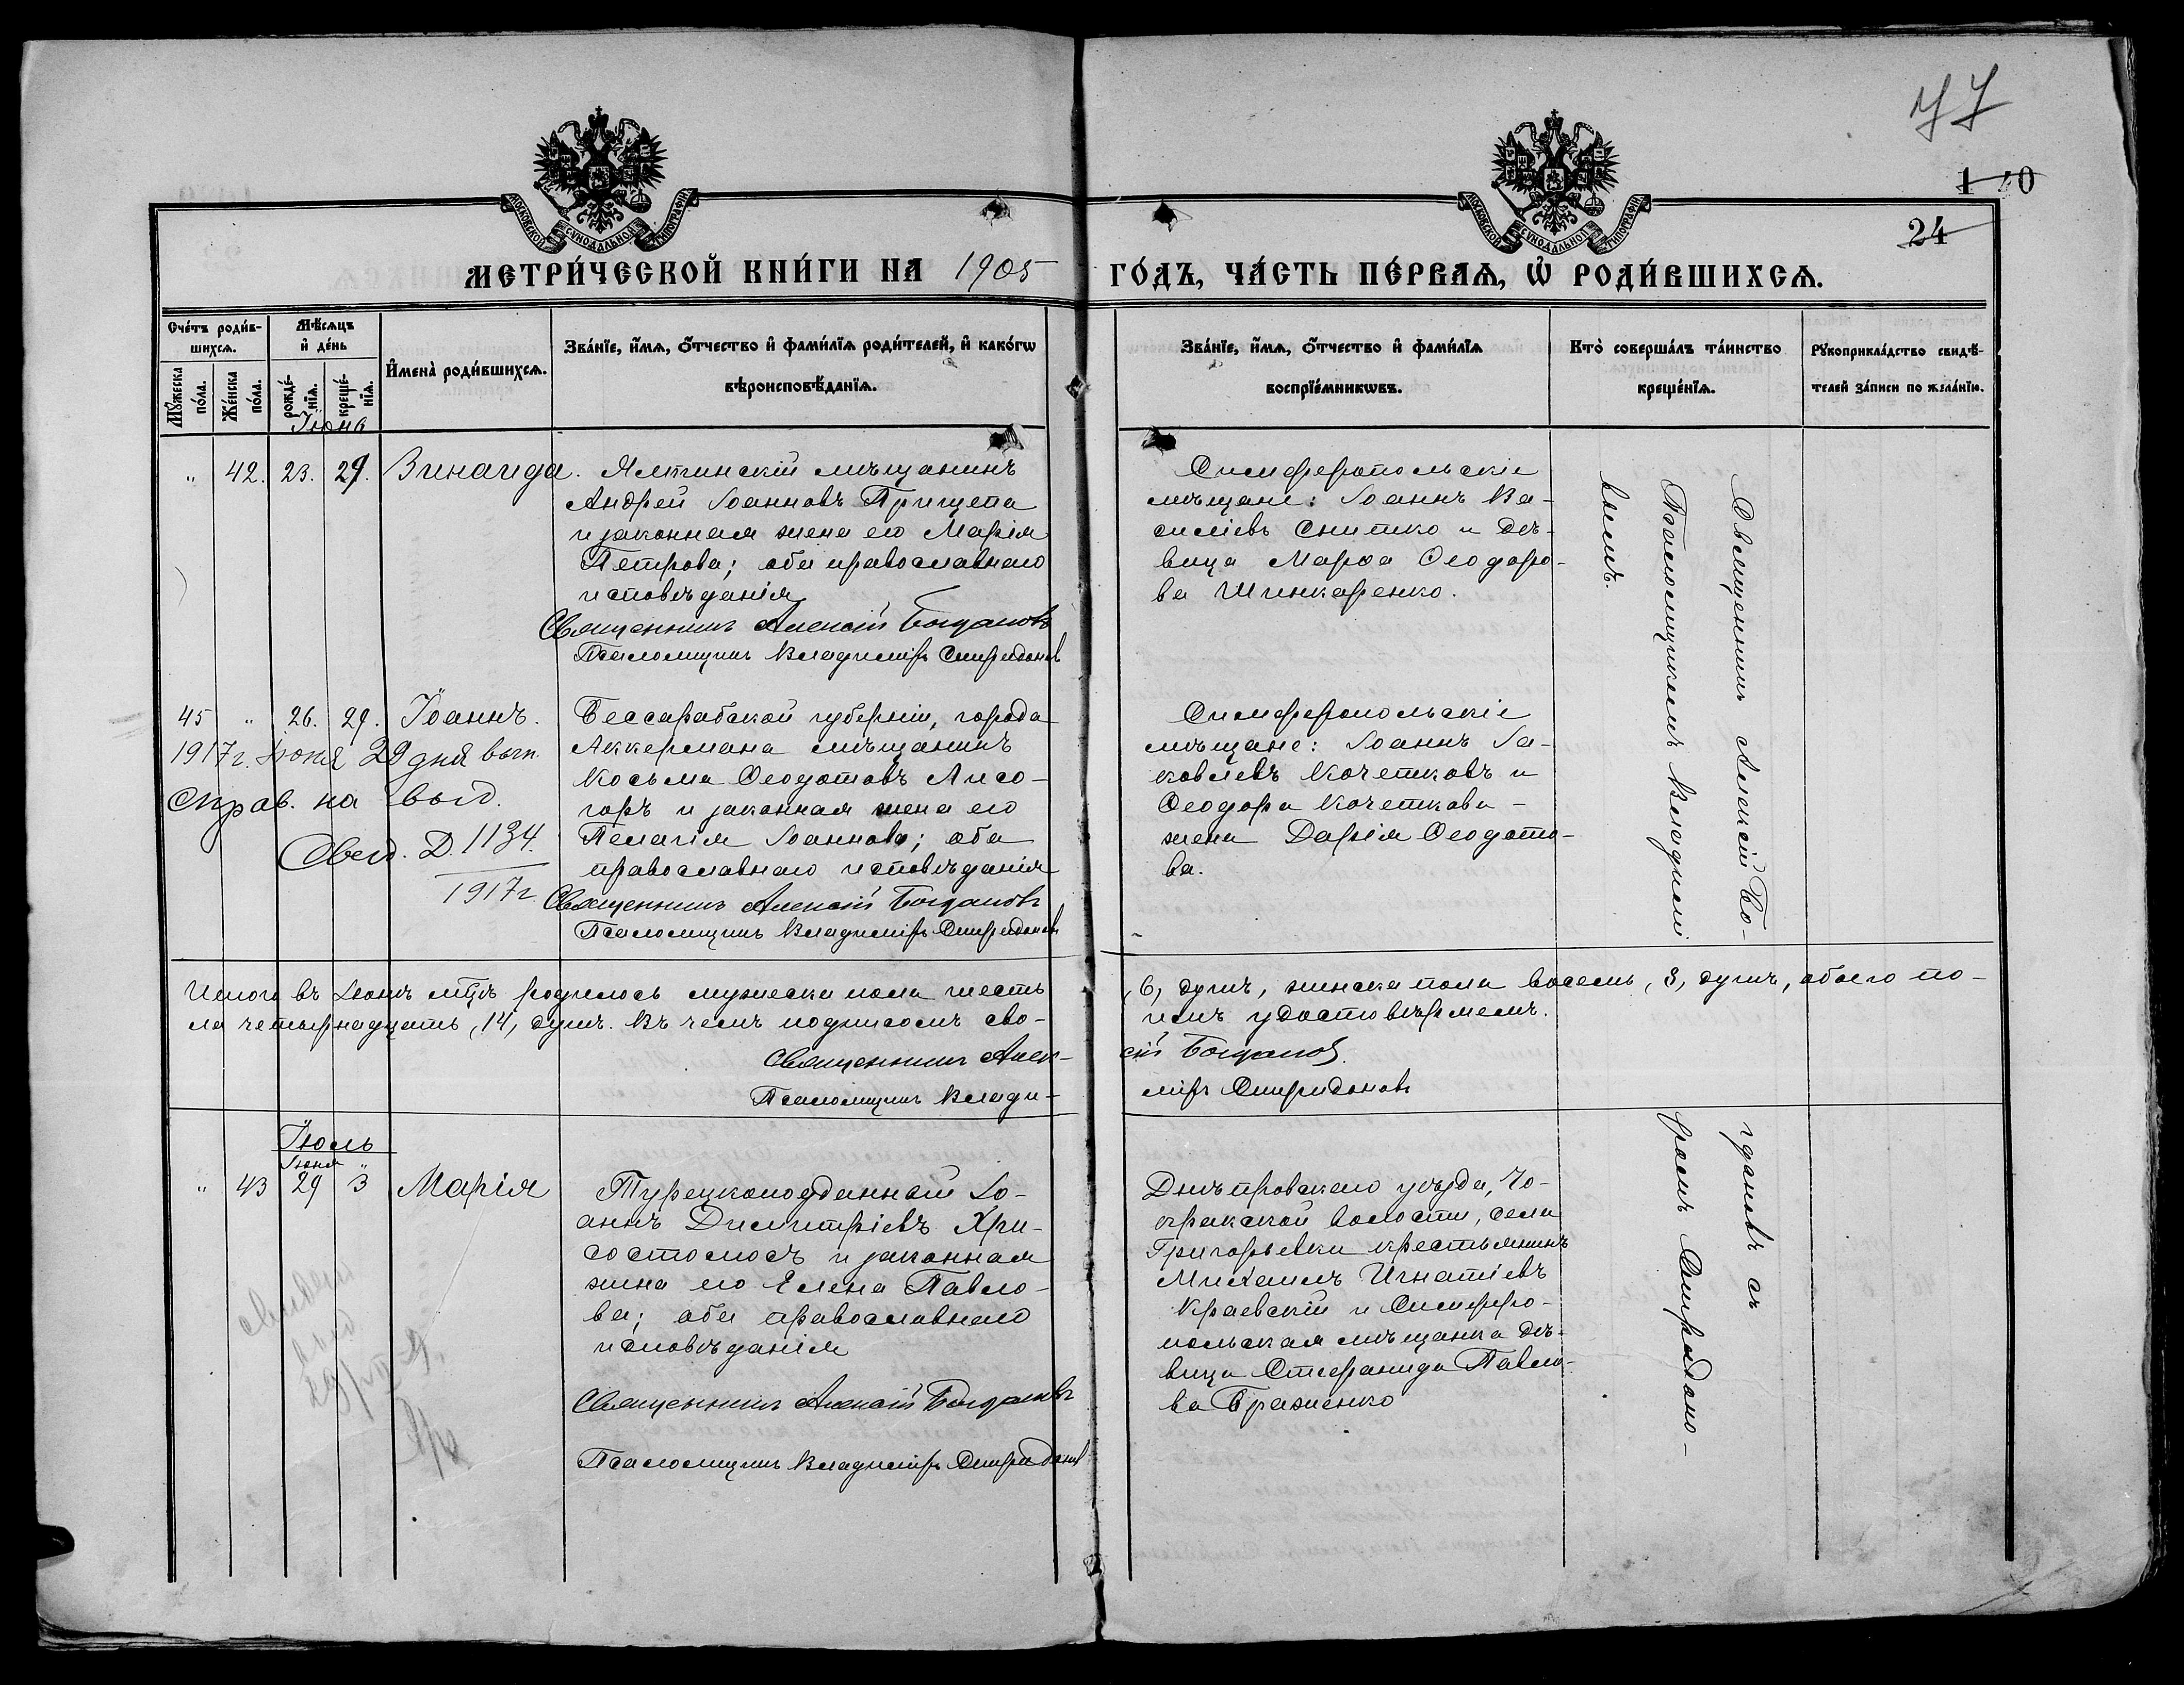 77
120
24
МОСКОВСКОЙ СѴНОДАЛЬНОЙ ТИПОГРАФІИ
МОСКОВСКОЙ СѴНОДАЛЬНОЙ ТИПОГРАФІИ
МЕТРИ́ЧЕСКОЙ КНИ́ГИ НА 1905 ГО́ДЪ, ЧА́СТЬ ПЕ́РВАѦ, Ѡ҆ РОДИ́ВШИХСѦ.
Сче́тъ роди́в-
шихсѧ.
Мꙋ́жеска
по́ла.
Же́нска
по́ла.
Мѣ́сѧцъ
и҆ де́нь
рожде́-
нїѧ.
креще́-
нїѧ.
Іюня
И҆мена̀ роди́вшихсѧ.
Зва́нїе, и҆́мѧ, ѻ҆́тчество и҆ фами́лїѧ роди́телей, и҆ како́гѡ
вѣроисповѣ́данїѧ.
Зва́нїе, и҆́мѧ, ѻ҆́тчество и҆ фами́лїѧ
воспрїе́мникѡвъ.
Кто̀ соверша́лъ та́инство
креще́нїѧ.
Рꙋкоприкла́дство свидѣ́-
телей за́писи по жела́нїю.
" 42. 23. 29. Зинаида.
Ялтинскій мѣщанинъ
Андрей Іоанновъ Прищепа
и законная жена его Марія
Петрова; оба православнаго
исповѣданія
Священникъ Алексій Богдановъ
Псаломщикъ Владиміръ Спиридоновъ
Симферопольскіе
мѣщане: Іоаннъ Ва-
силіевъ Снитко и дѣ-
вица Марѳа Ѳеодоро-
ва Шинкаренко.
45 " 26. 29. Іоаннъ.
1917 г. Іюня 29 дня вып.
справ. на выд.
Свид. Д. 1134.
1917 г.
Бессарабской губерніи, города
Аккермана мѣщанинъ
Косьма Ѳеодотовъ Лисо-
горъ и законная жена его
Пелагія Іоаннова; оба
православнаго исповѣданія
Священникъ Алексій Богдановъ
Псаломщикъ Владиміръ Спиридоновъ
Симферопольскіе
мѣщане: Іоаннъ Іа-
ковлевъ Кочетковъ и
Ѳеодора Кочеткова
жена Дарія Ѳеодото-
ва.
Итого въ Іюнѣ мѣсяцѣ родилось мужеска пола шесть, 6, душъ, женска пола восемь, 8, душъ, обоего по-
ла четырнадцать, 14, душъ. Въ чемъ подписомъ сво-
имъ удостовѣряемъ.
Священникъ Алексій Богдановъ
Псаломщикъ Владиміръ Спиридоновъ
Іюль
Іюня "
" 43 29 3 Марія
Турецкоподданный Іо-
аннъ Димитріевъ Хри-
состомосъ и законная
жена его Елена Павло-
ва; оба православнаго
исповѣданія
Священникъ Алексій Богдановъ
Псаломщикъ Владиміръ Спиридоновъ
Днѣпровскаго уѣзда, Чо-
кракской волости, села
Григорьевки крестьянинъ
Михаилъ Игнатіевъ
Краевскій и Симферо-
польская мѣщанка дѣ-
вица Стефанида Павло-
ва Браженко
Священникъ Алексій Богдановъ съ
Псаломщикомъ Владиміромъ Спиридоно-
вымъ.